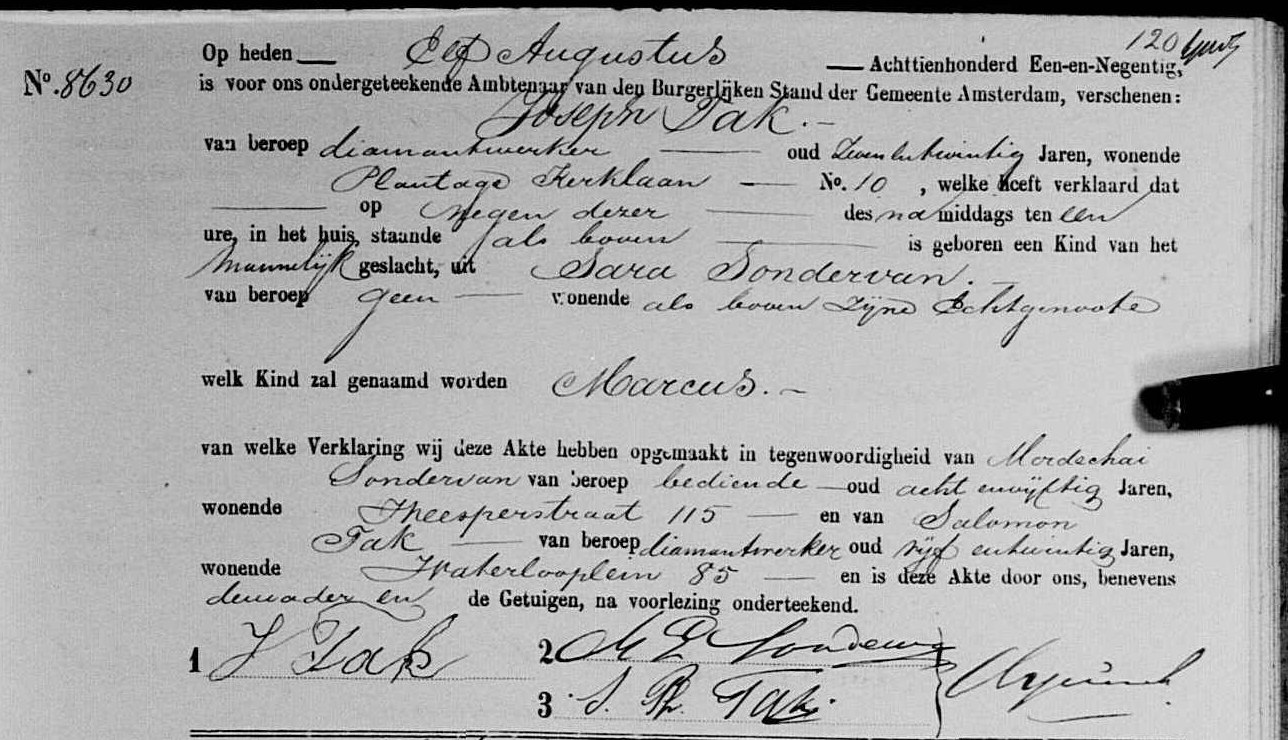 120
Op heden Elf Augustus Achttienhonderd Een-en-Negentig,
No. 8630
is voor ons ondergeteekende Ambtenaar van den Burgerlijken Stand der Gemeente Amsterdam, verschenen:
Joseph Tak.
van beroep diamantwerker oud Zevenentwintig Jaren, wonende
Plantage Kerklaan No. 10 , welke heeft verklaard dat
op negen dezer des namiddags ten een
ure, in het huis, staande als boven is geboren een Kind van het
Mannelijk geslacht, uit Sara Sondervan.
van beroep geen wonende als boven Zijne Echtgenoote
welk Kind zal genaamd worden Marcus.
van welke Verklaring wij deze Akte hebben opgemaakt in tegenwoordigheid van Mordechai
Sondervan van beroep bediende oud acht envijftig Jaren,
wonende Weesperstraat 115 en van Salomon
Tak van beroep diamantwerker oud vijf entwintig Jaren,
wonende Waterlooplein 85 en is deze Akte door ons, benevens
de vader en de Getuigen, na voorlezing onderteekend.
1 J Tak 2 M E Sonderv
3 S. Ph. Tak.